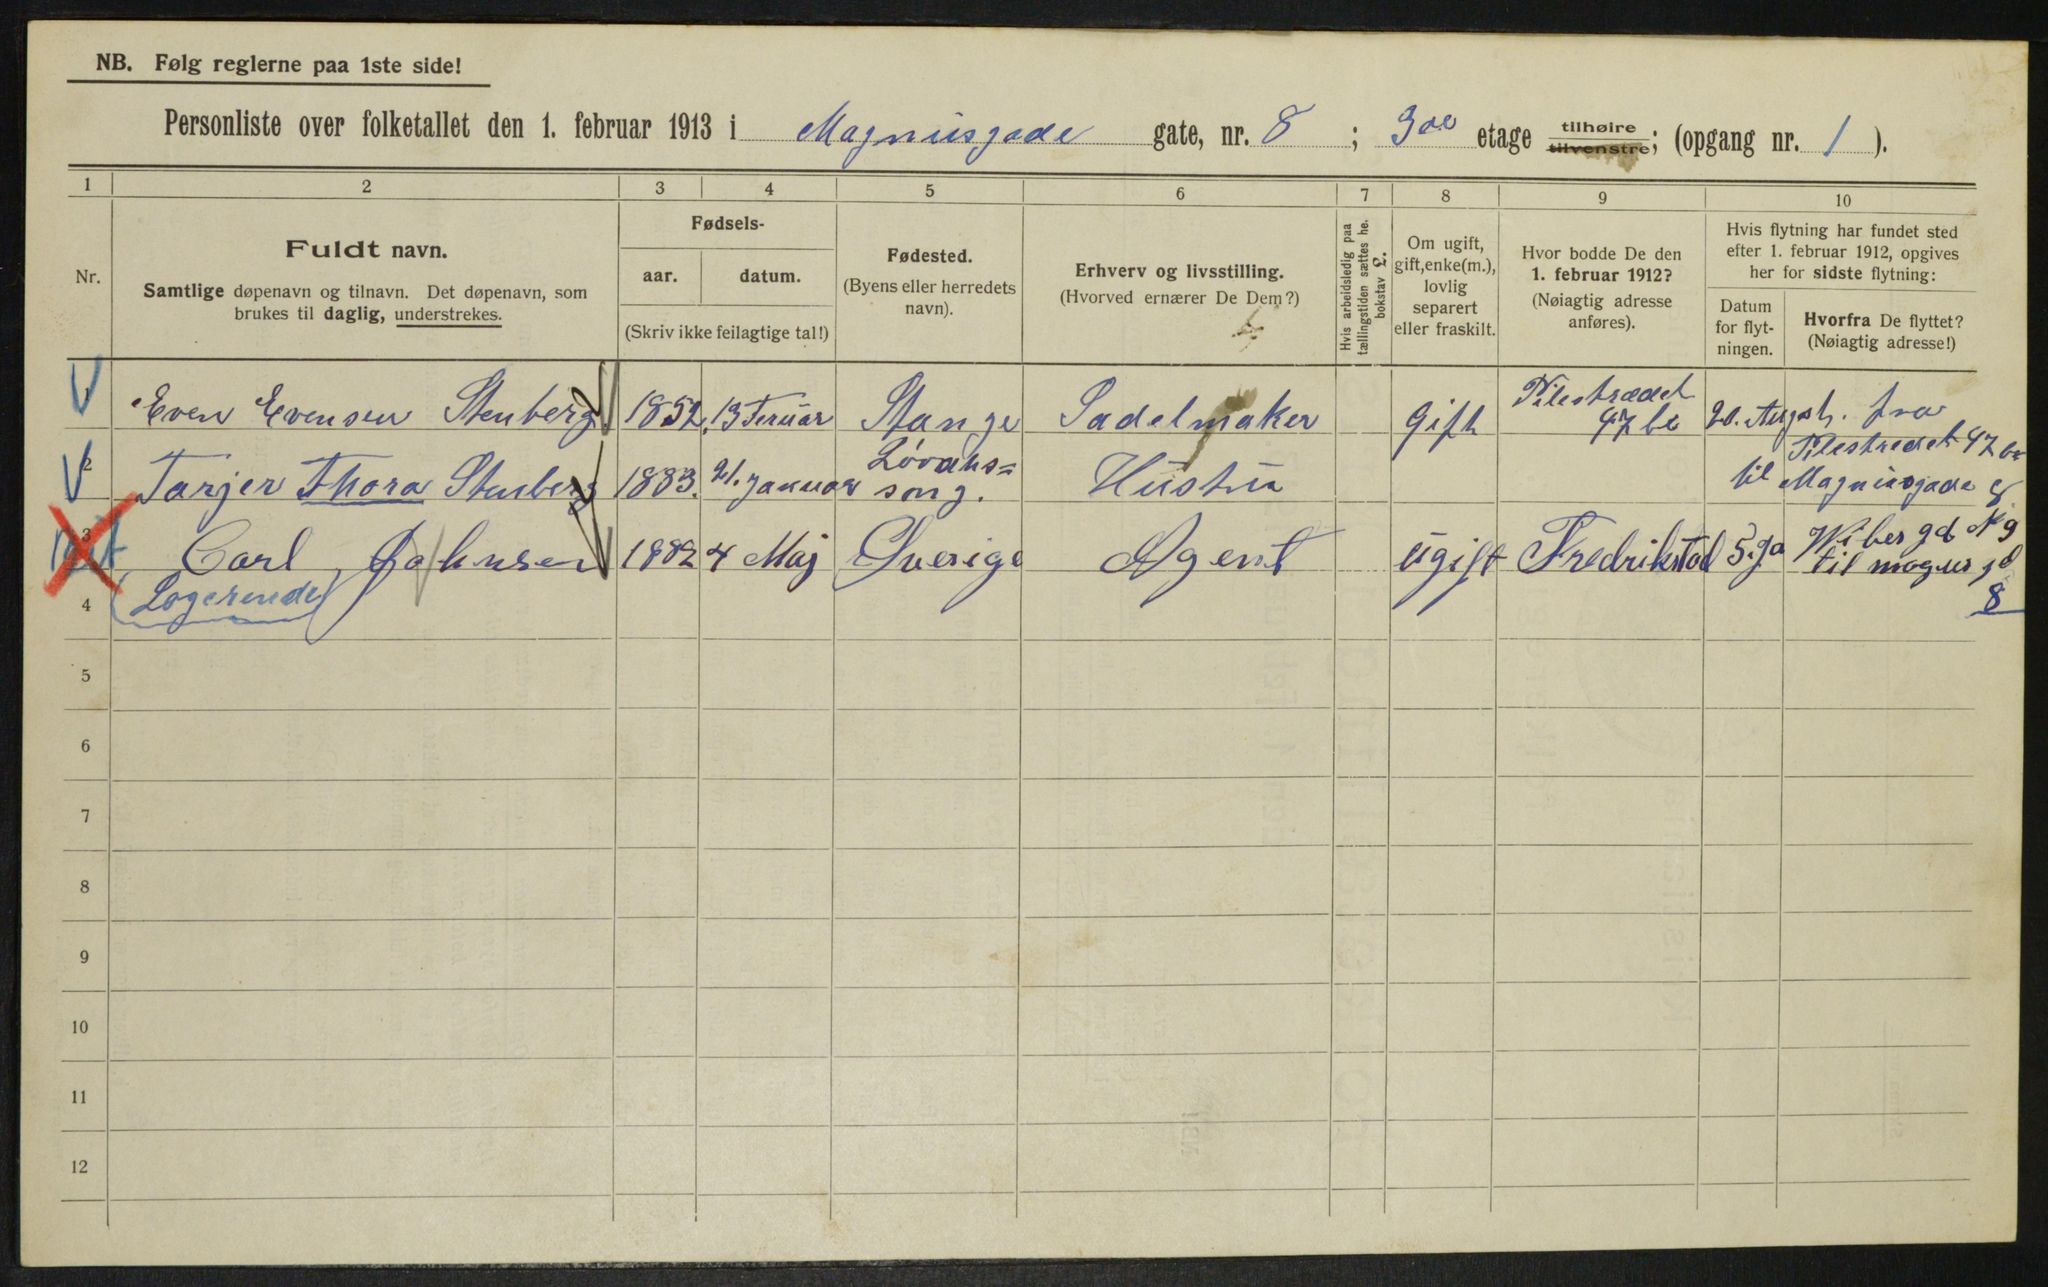 NB. Følg reglerne paa 1ste side!
Personliste over folketallet den 1. februar 1913 i Magnusgade gate, nr. 8 ; 3de etage tilhøire tilvenstre; (opgang nr. 1 ).
1 2 3 4 5 6 7 8 9 10
Nr.
Fuldt navn.
Samtlige døpenavn og tilnavn. Det døpenavn, som
brukes til daglig, understrekes.
Fødsels-
aar. datum.
(Skriv ikke feilagtige tal!)
Fødested.
(Byens eller herredets
navn).
Erhverv og livsstilling.
(Hvorved ernærer De Dem?)
Hvis arbeidsledig paa
tællingstiden sættes he.
bokstav L.
Om ugift,
gift, enke(m.),
lovlig
separert
eller fraskilt.
Hvor bodde De den
1. februar 1912?
(Nøiagtig adresse
anføres).
Hvis flytning har fundet sted
efter 1. februar 1912, opgives
her for sidste flytning:
Datum
for flyt-
ningen.
Hvorfra De flyttet?
(Nøiagtig adresse!)
1 Even Evensen Stenberg 1852 13 Feruar Stange Sadelmaker Gift Pilestrædet 47 20. Augst. fra
Pilestredet 47
2 Tarjer Thora Stenberg 1883. 21. Januar Hustru til Magnusgade 8
song.
3 Carl Johnsen 1882 4 Maj Sverige Agent ugift Fredrikstad Wibesgd N 9
til magnusgd
8
4 (Logerende)
5
6
7
8
9
10
11
12